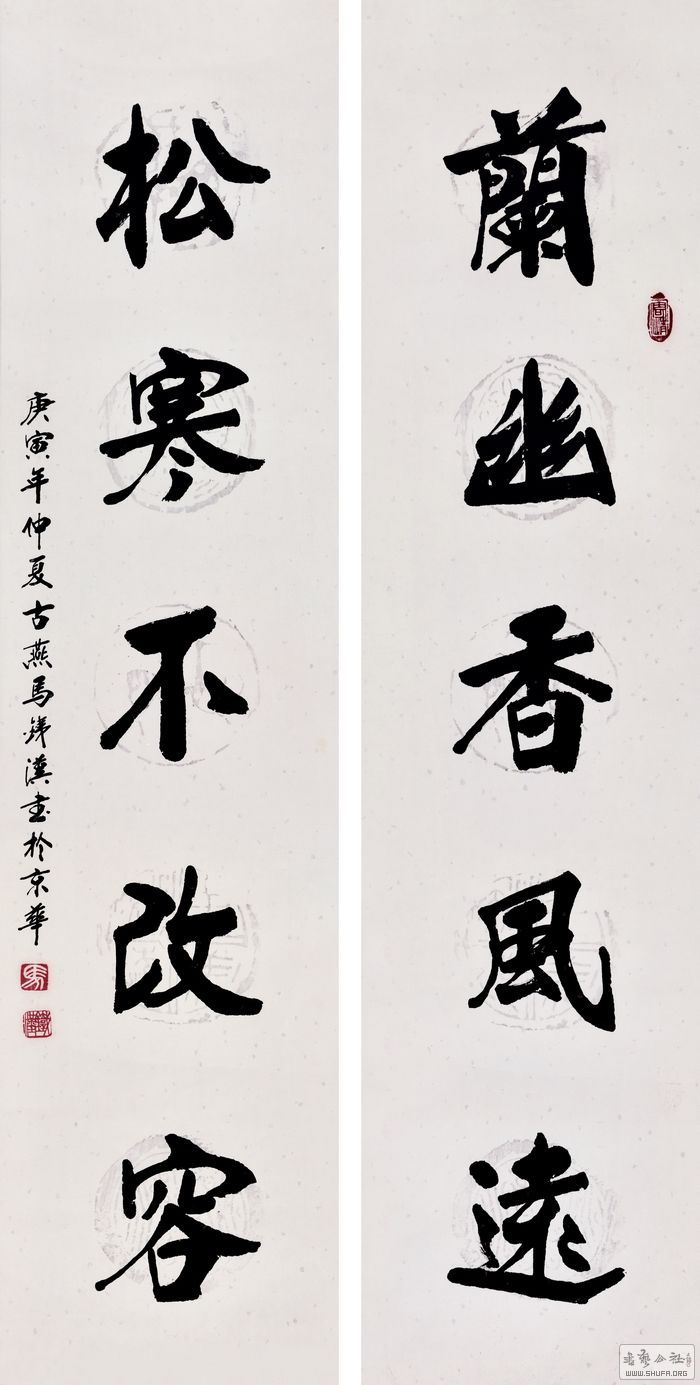 蘭幽香風遠
松寒不改容
庚寅年仲夏古燕馬鐵漢書於京華
書藝公社
WWW.SHUFA.ORG